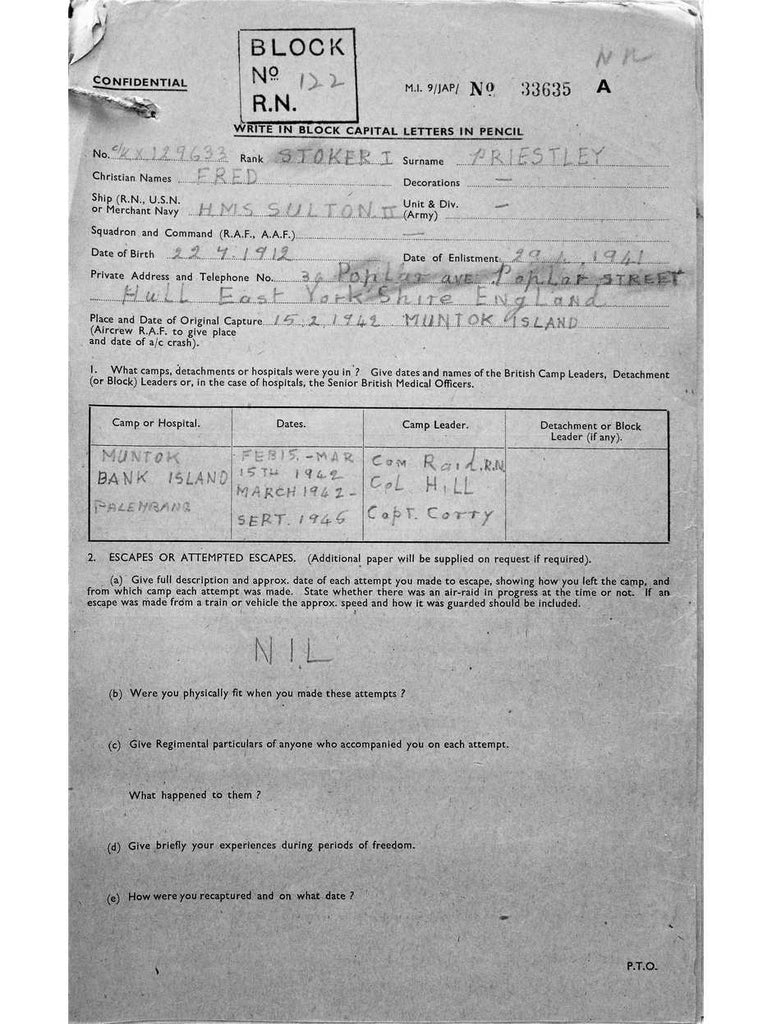 BLOCK
Nº 122
R.N.
CONFIDENTIAL
M.I. 9/JAP/ Nº 33635 A
WRITE IN BLOCK CAPITAL LETTERS IN PENCIL
No. C/KX129633 Rank STOKER I Surname PRIESTLEY
Christian Names FRED Decorations —
Ship (R.N., U.S.N. or Merchant Navy HMS SULTON II Unit & Div. (Army) —
Squadron and Command (R.A.F., A.A.F.) —
Date of Birth 22 4 1912 Date of Enlistment 29 1941
Private Address and Telephone No. 36 Poplar ave Poplar STREET
Hull East YorkShire England
Place and Date of Original Capture 15.2.1942 MUNTOK ISLAND
(Aircrew R.A.F. to give place
and date of a/c crash).
1. What camps, detachments or hospitals were you in ? Give dates and names of the British Camp Leaders, Detachment
(or Block) Leaders or, in the case of hospitals, the Senior British Medical Officers.
Camp or Hospital. Dates. Camp Leader. Detachment or Block Leader (if any).
MUNTOK FEB15.-MAR Com Raid.R.N.
BANK ISLAND 15TH 1942 Col HILL
PALEMBANG MARCH 1942- Capt. Corry
SERT. 1945
2. ESCAPES OR ATTEMPTED ESCAPES. (Additional paper will be supplied on request if required).
(a) Give full description and approx. date of each attempt you made to escape, showing how you left the camp, and
from which camp each attempt was made. State whether there was an air-raid in progress at the time or not. If an
escape was made from a train or vehicle the approx. speed and how it was guarded should be included.
NIL
(b) Were you physically fit when you made these attempts ?
(c) Give Regimental particulars of anyone who accompanied you on each attempt.
What happened to them ?
(d) Give briefly your experiences during periods of freedom.
(e) How were you recaptured and on what date ?
P.T.O.